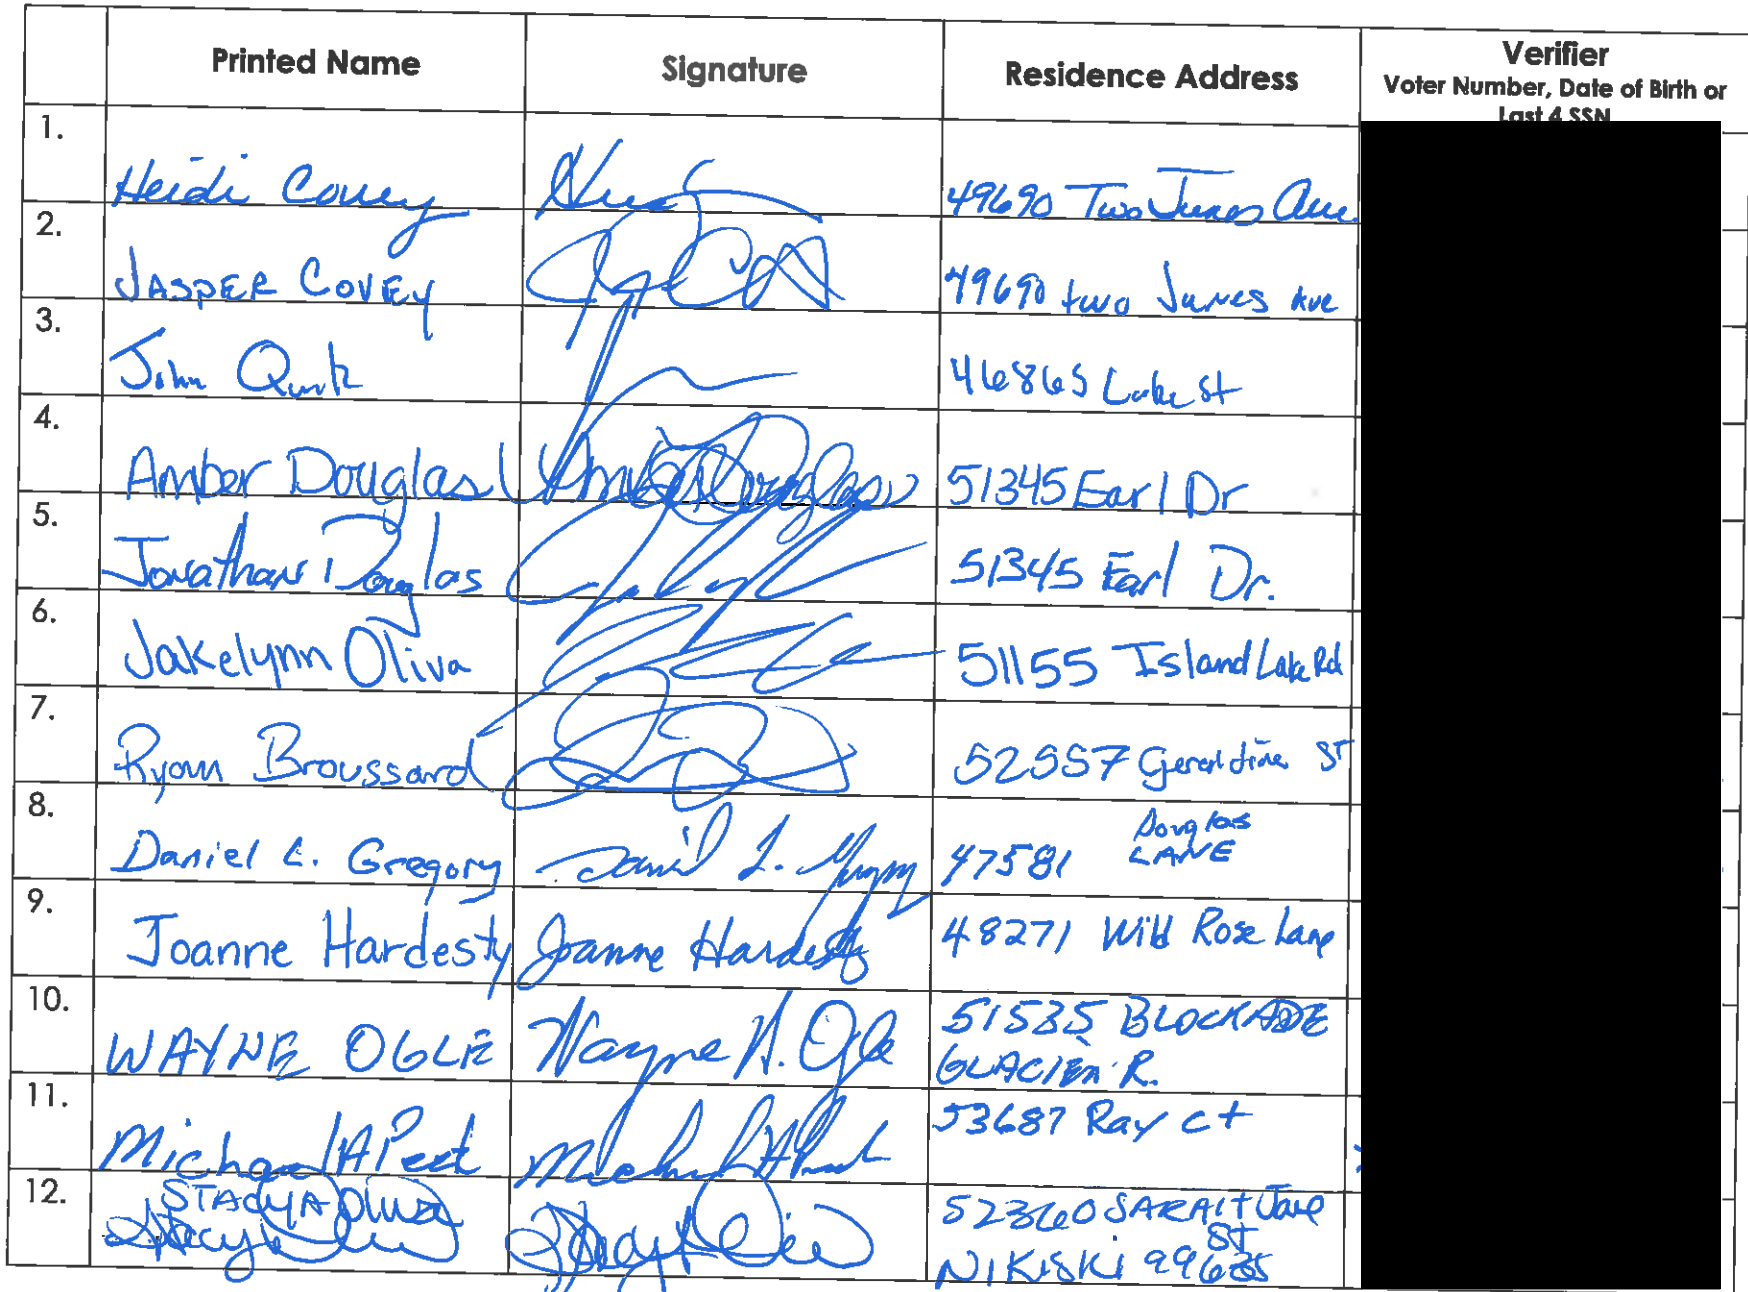 Printed Name Signature Residence Address Verifier
Voter Number, Date of Birth or
Last 4 SSN
1. Heidi Covey 49690 Two Junes Ave.
2. JASPER COVEY 49690 two Junes Ave
3. John Quirk 46865 Lake St
4. Amber Douglas Amber Douglas 51345 Earl Dr
5. Jonathan Douglas 51345 Earl Dr.
6. Jakelynn Oliva 51155 Island Lake Rd
7. Ryan Broussard Geraldine ST
8. Daniel L. Gregory Daniel L. Gregory 47581 Douglas
LANE
9. Joanne Hardesty Joanne Hardesty 48271 Wild Rose Lane
10. WAYNE OGLE Wayne H. Ogle 51535 BLOCKADE
GLACIER R.
11. Michael A Peet 53687 Ray ct
12. STACY A Oliva 52360 SARAH Jane
St
NIKISKI 99635